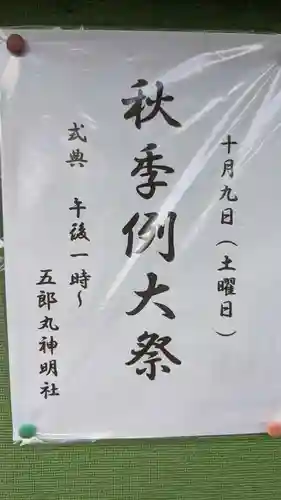 十月九日（土曜日）
秋季例大祭
式典　午後一時～
五郎丸神明社